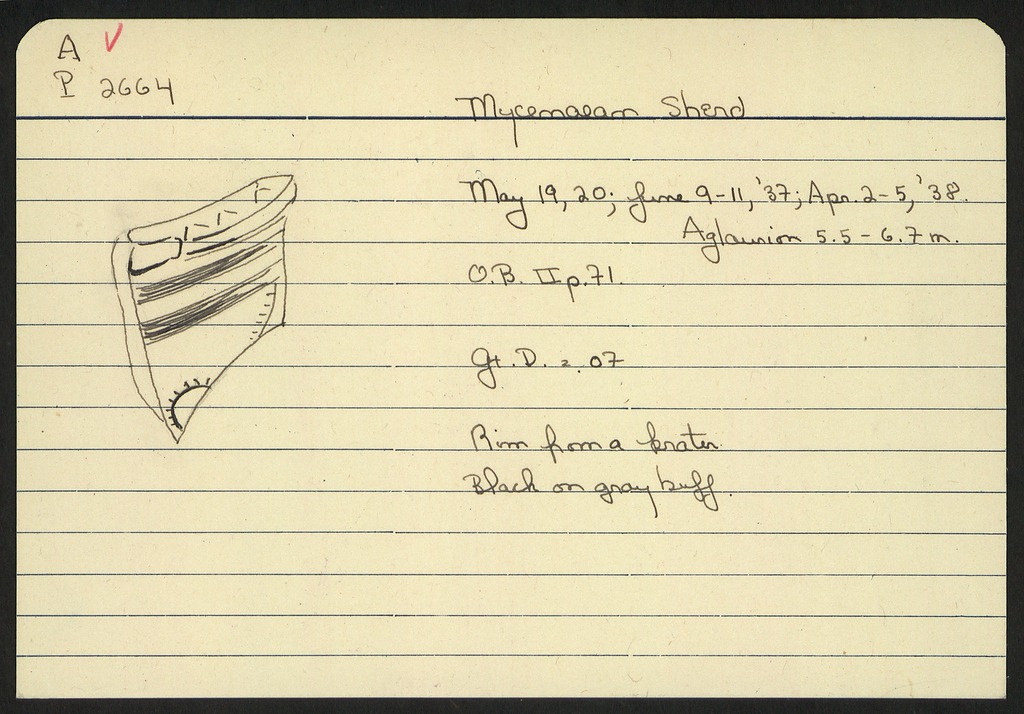 A
P 2664
Mycenaean Sherd
May 19, 20; June 9-11, '37; Apr. 2-5, '38.
Aglaurion 5.5 - 6.7 m.
O.B. II p. 71.
Gt. D. = .07
Rim from a krater.
Black on gray buff.